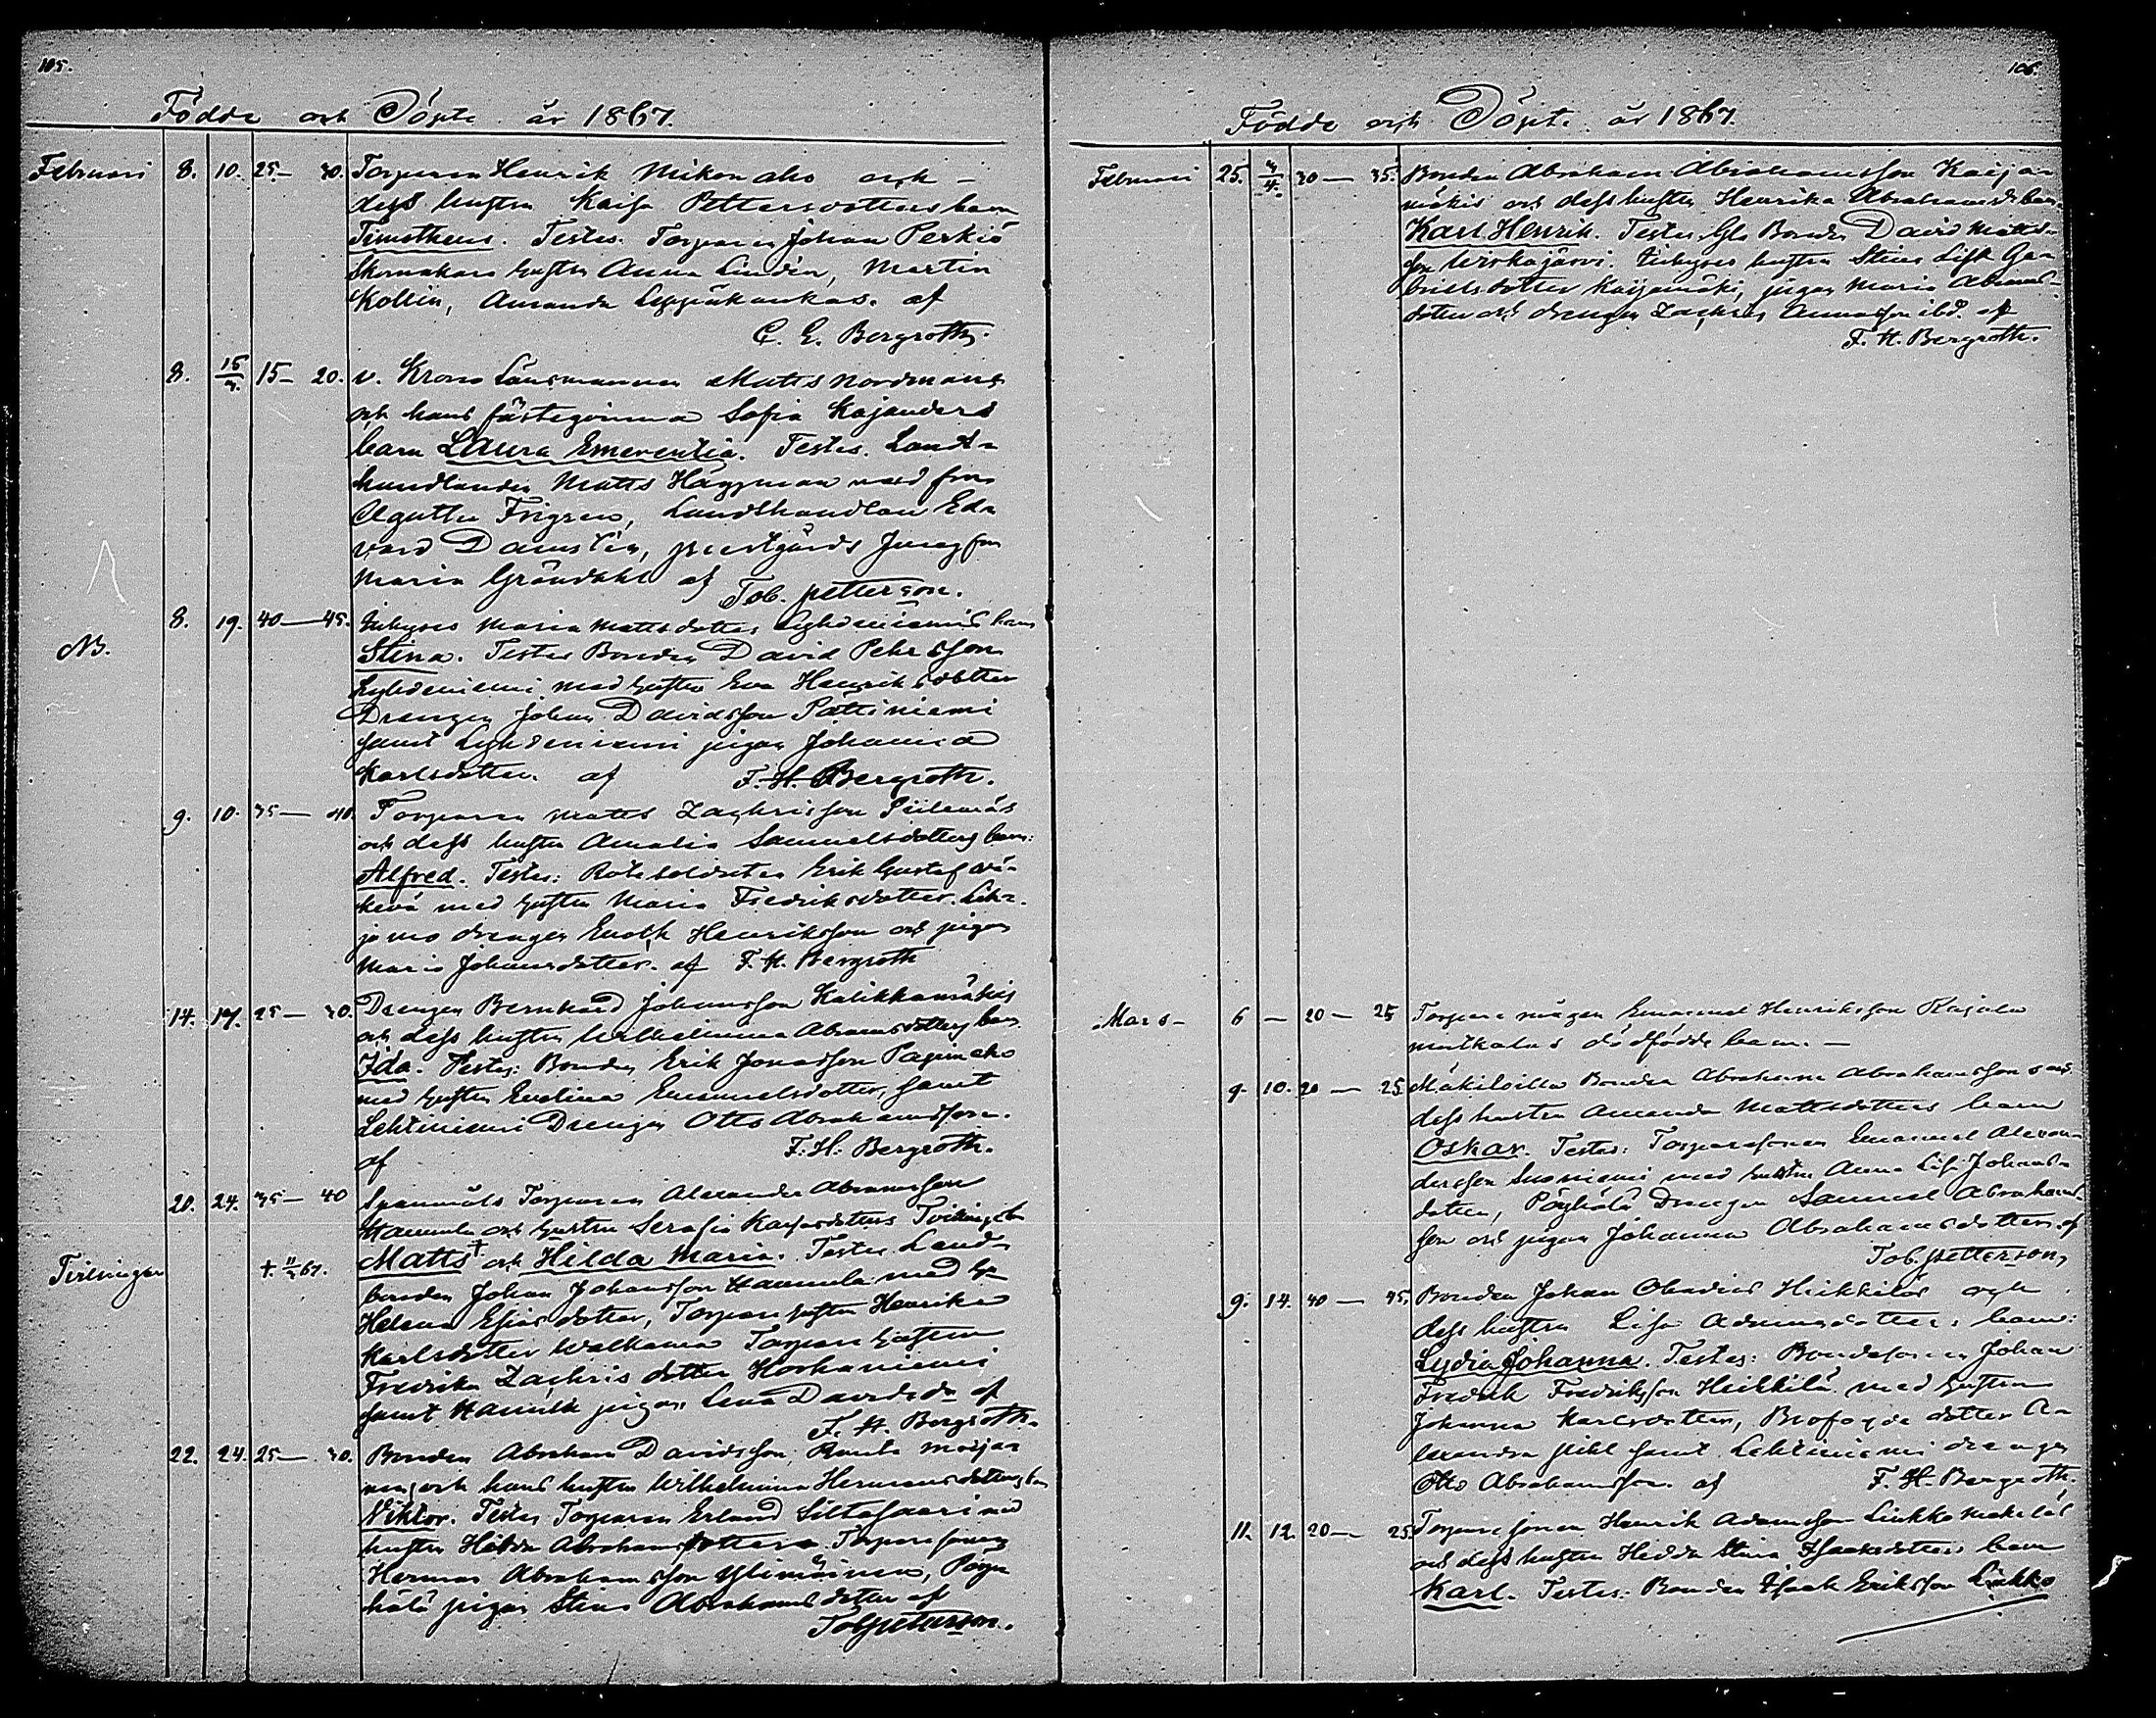 105.
Födde och Döpte år 1867.
Februari 8. 10. 25.— 30. Torparen Henrik Mikonaho och
dess hustru Kaisa Pettersdotters barn
Timotheus. Testes. Torparen Johan Perkiö
Skomakare hustru Anna Lindén, Martin
Kollin, Amanda Leppäkankas. af
C. E. Bergroth.
8. 15/3. 15— 20. v. Krono Länsmannen Matts Nordmans
och hans fästeqvinna Sofia Kajanders
barn Laura Emerentia. Testes. Landt-
handlanden Matts Häggman med fru
Agatha Frigren, Landthandlan Ed-
vard Damstén, prestgårds Jungfru
Maria Gröndahl af Tob. Petterson.
NB. 8. 19. 40—45. Inhyses Maria Mattsdotter Lyhdeniemis barn
Stina. Testes Bonden David Pehrsson
Lyhdeniemi med hustru Eva Henriksdotter
Drengen Johan Davidsson Pättiniemi
samt Lyhdeniemi pigan Johanna
Karlsdotter. af F. H. Bergroth.
9. 10. 35— 40. Torparen Matts Zachrisson
och dess hustru Amalia Samuelsdotters barn:
Alfred. Testes: Rotesoldaten Erik Gustaf Wä-
kevä med hustru Maria Fredriksdotter.
drengen Enok Henriksson och pigan
Maria Johansdotter. af F. H. Bergroth
14. 17. 25— 30. Drengen Bernhard Johansson Kalikkamäkis
och dess hustru Wilhelmina Abramsdotters barn
Ida. Testes: Bonden Erik Jonasson Pajunaho
med hustru Evelina Emanuelsdotter, samt
Lehtiniemi Drengen Otto Abrahamsson.
af F. H. Bergroth.
20. 24. 35— 40 Torparen Alexander Abramsson
Hannula och hustru Serafia Karlsdotters Tvillingb.
Tvillingar †. 11/3 67. Matts † och Hilda Maria. Testes Land-
bonden Johan Johansson Hannula med h.
Helena Esiasdotter, Torpare hustru Henrika
Karlsdotter Torpare hustrun
Fredrika Zachrisdotter Korhaniemi
samt Hannula pigan Lena Davidsdr af
F. H. Bergroth.
22. 24. 25— 30. Bonden Abraham Davidsson
och hans hustru Wilhelmina Hermansdotters b.
Viktor. Testes Torparen Erland Siltasaari med
hustru Hedda Abrahamsdotter. Torparesonen
Herman Abrahamsson Ylimäinen, Pöy-
hölä pigan Stina Abrahamsdotter af
Tob. Petterson.
106.
Födde och Döpte år 1867.
Februari 25. 3/4. 30— 35. Bonden Abraham Abrahamsson Kaija-
mäkis och dess hustru Henrika Abrahamsd. barn
Karl Henrik. Testes, Gla Bonden David Matts-
son Wiskajärvi. Inhyses hustru Stina Lisa Ga-
brielsdotter Kaijamäki, pigan Maria Abrams-
dotter och drengen Zachris Annasson ibd. af
F. H. Bergroth.
Mars 6 — 20— 25 Torpare mågen Emanuel Henriksson Rajala
dödfödde barn. —
9. 10. 20— 25. Bonden Abraham Abrahamssons och
dess hustru Amanda Mattsdotters barn
Oskar. Testes: Torparesonen Emanuel Alexan-
dersson Suoniemi med hustru Anna Lisa Johans-
dotter, Pöyhölä Drengen Samuel Abrahams-
son och pigan Johanna Abrahamsdotter. af
Tob. Petterson,
9. 14. 40— 45. Bonden Johan Obadias Heikkiläs och
dess hustru Lisa Adamsdotters barn:
Lydia Johanna. Testes: Bondesonen Johan
Fredrik Fredriksson Heikkilä med hustrun
Johanna Karlsdotter, Brofogde dotter A-
lexandra Pihl samt Lehtiniemi drengen
Otto Abrahamsson. af F. H. Bergroth.
11. 12. 20— 25. Torparesonen Henrik Adamsson Liukko
och dess hustru Hedda Stina Isaksdotters barn
Karl. Testes: Bonden Isaak Eriksson Liukko